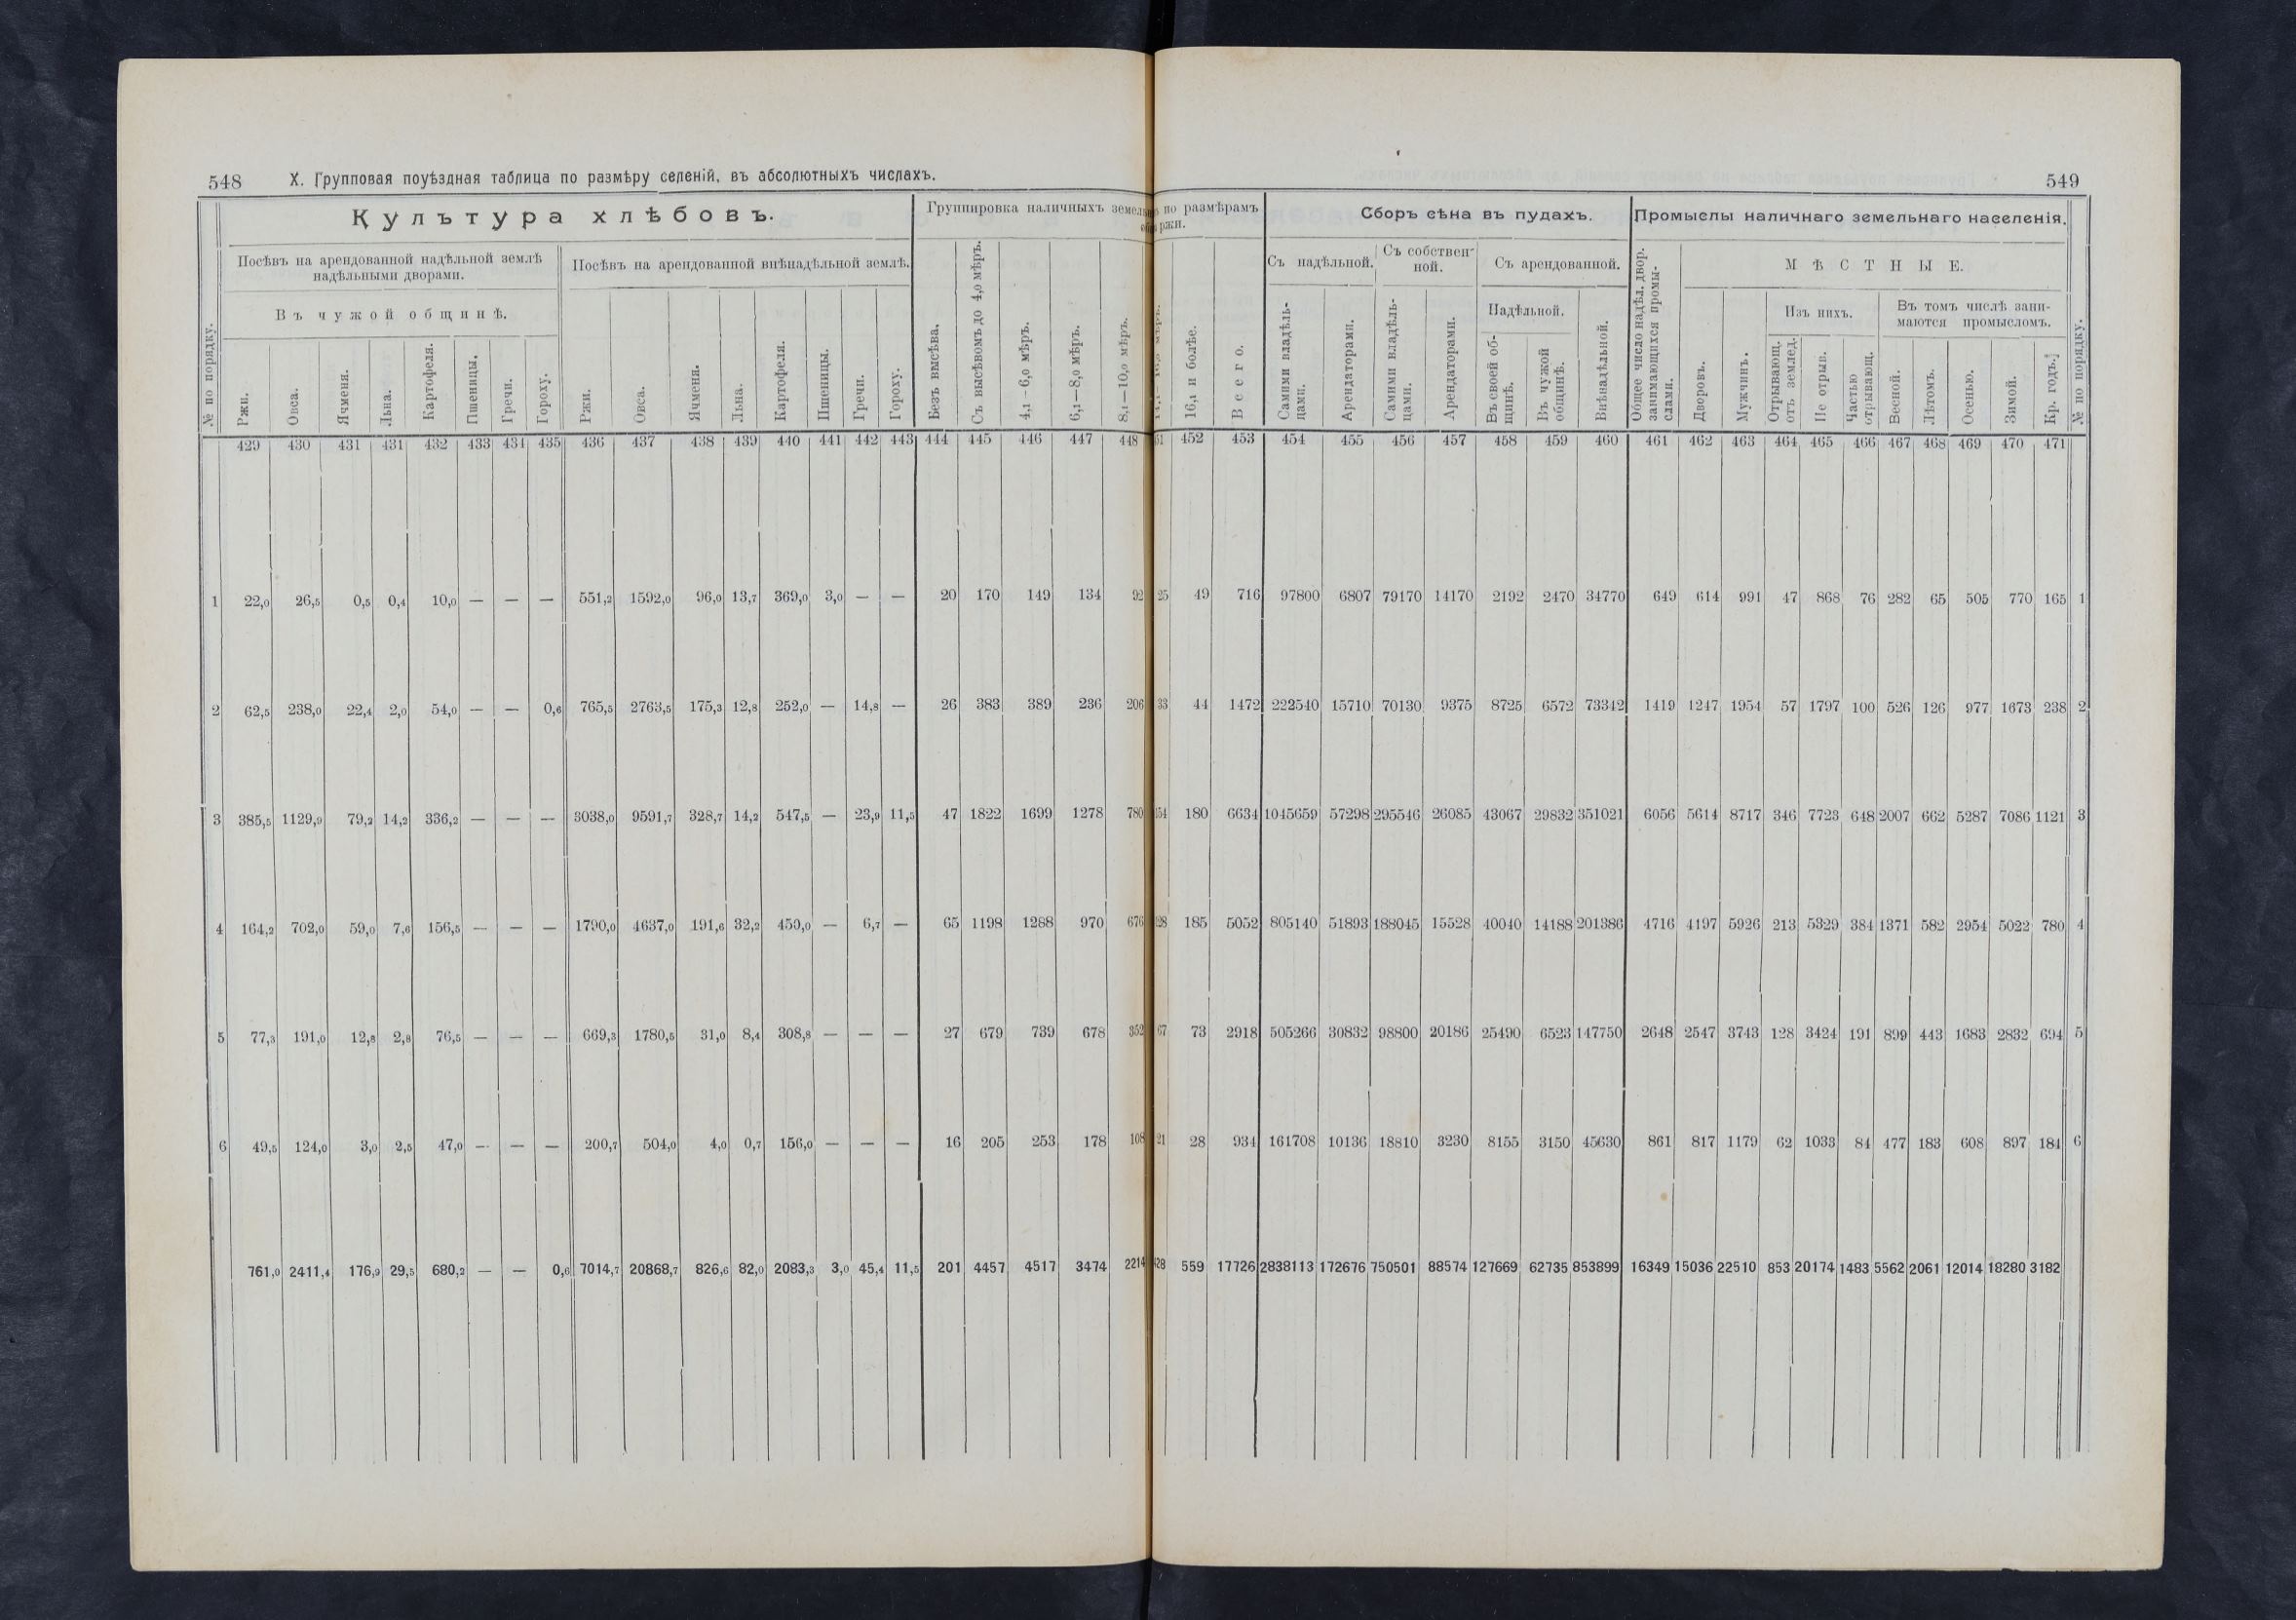 548 X. Групповая поуѣздная таблица по размѣру селеній, въ абсолютныхъ числахъ.
549
№ по порядку.
Культура хлѣбовъ.
Посѣвъ на арендованной надѣльной землѣ
надѣльными дворами.
Въ чужой общинѣ.
Ржи. Овса. Ячменя. Льна. Картофеля. Пшеницы. Гречи. Гороху.
Посѣвъ на арендованной внѣнадѣльной землѣ.
Ржи. Овса. Ячменя. Льна. Картофеля. Пшеницы. Гречи. Гороху.
Группировка наличныхъ по размѣрамъ
Безъ высѣва. Съ высѣвомъ до 4,0 мѣръ. 4,1-6,0 мѣръ. 6,1—8,0 мѣръ. 8,1—10,0 мѣръ. 16,1 и болѣе. Всего.
Сборъ сѣна въ пудахъ.
Съ надѣльной.
Самими владѣль-
цами.
Арендаторами.
Съ собствен-
ной.
Самими владѣль-
цами.
Арендаторами.
Съ арендованной.
Надѣльной.
Въ своей об-
щинѣ.
Въ чужой
общинѣ.
Внѣнадѣльной.
Промыслы наличнаго земельнаго населенія.
Общее число надѣл. двор.
занимающихся промы-
слами.
МѢСТНЫЕ.
Дворовъ. Мужчинъ.
Изъ нихъ.
Отрывающ.
отъ землед.
Не отрыв.
Частью
отрывающ.
Въ томъ числѣ зани-
маются промысломъ.
Весной. Лѣтомъ. Осенью. Зимой. Кр. годъ.
№ по порядку.
429 430 431 431 432 433 434 435 436 437 438 439 440 441 442 443 444 445 446 447 448 452 453 454 455 456 457 458 459 460 461 462 463 464 465 466 467 468 469 470 471
1 22,0 26,5 0,5 0,4 10,0 — — — 551,2 1592,0 96,0 13,7 369,0 3,0 — — 20 170 149 134 92 25 49 716 97800 6807 79170 14170 2192 2470 34770 649 614 991 47 868 76 282 65 505 770 165 1
2 62,5 238,0 22,4 2,0 54,0 — — 0,6 765,5 2763,5 175,3 12,8 252,0 — 14,8 — 26 383 389 236 206 33 44 1472 222540 15710 70130 9375 8725 6572 73342 1419 1247 1954 57 1797 100 526 126 977 1673 238 2
3 385,5 1129,9 79,2 14,2 336,2 — — — 3038,0 9591,7 328,7 14,2 547,5 — 23,9 11,5 47 1822 1699 1278 780 180 6634 1045659 57298 295546 26085 43067 29832 351021 6056 5614 8717 346 7723 648 2007 662 5287 7086 1121 3
4 164,2 702,0 59,0 7,6 156,5 — — — 1790,0 4637,0 191,6 32,2 450,0 — 6,7 — 65 1198 1288 970 676 185 5052 805140 51893 188045 15528 40040 14188 201386 4716 4197 5926 213 5329 384 1371 582 2954 5022 780 4
5 77,3 191,0 12,8 2,8 76,5 — — — 669,3 1780,5 31,0 8,4 308,8 — — — 27 679 739 678 352 73 2918 505266 30832 98800 20186 25490 6523 147750 2648 2547 3743 128 3424 191 899 443 1683 2832 694 5
6 49,5 124,0 3,0 2,5 47,0 — — — 200,7 504,0 4,0 0,7 156,0 — — — 16 205 253 178 108 28 934 161708 10136 18810 3230 8155 3150 45630 861 817 1179 62 1033 84 477 183 608 897 184 6
761,0 2411,4 176,9 29,5 680,2 — — 0,6 7014,7 20868,7 826,6 82,0 2083,3 3,0 45,4 11,5 201 4457 4517 3474 2214 559 17726 2838113 172676 750501 88574 127669 62735 853899 16349 15036 22510 853 20174 1483 5562 2061 12014 18280 3182